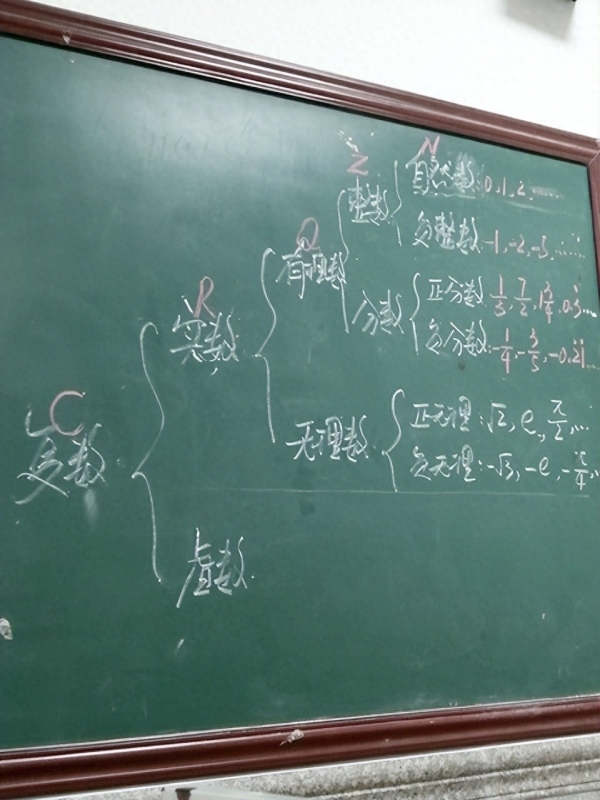 N
Z
自然数:0,1,2,……
整数
负整数:-1,-2,-3,……
Q
有理数
正分数:1/3,7/2,1 3/4,0.3…
分数
负分数:-1/4,-3/5,-0.21…
R
实数
C
复数
正无理:√2,e,π/2,…
无理数
负无理:-√3,-e,-π/4,
虚数